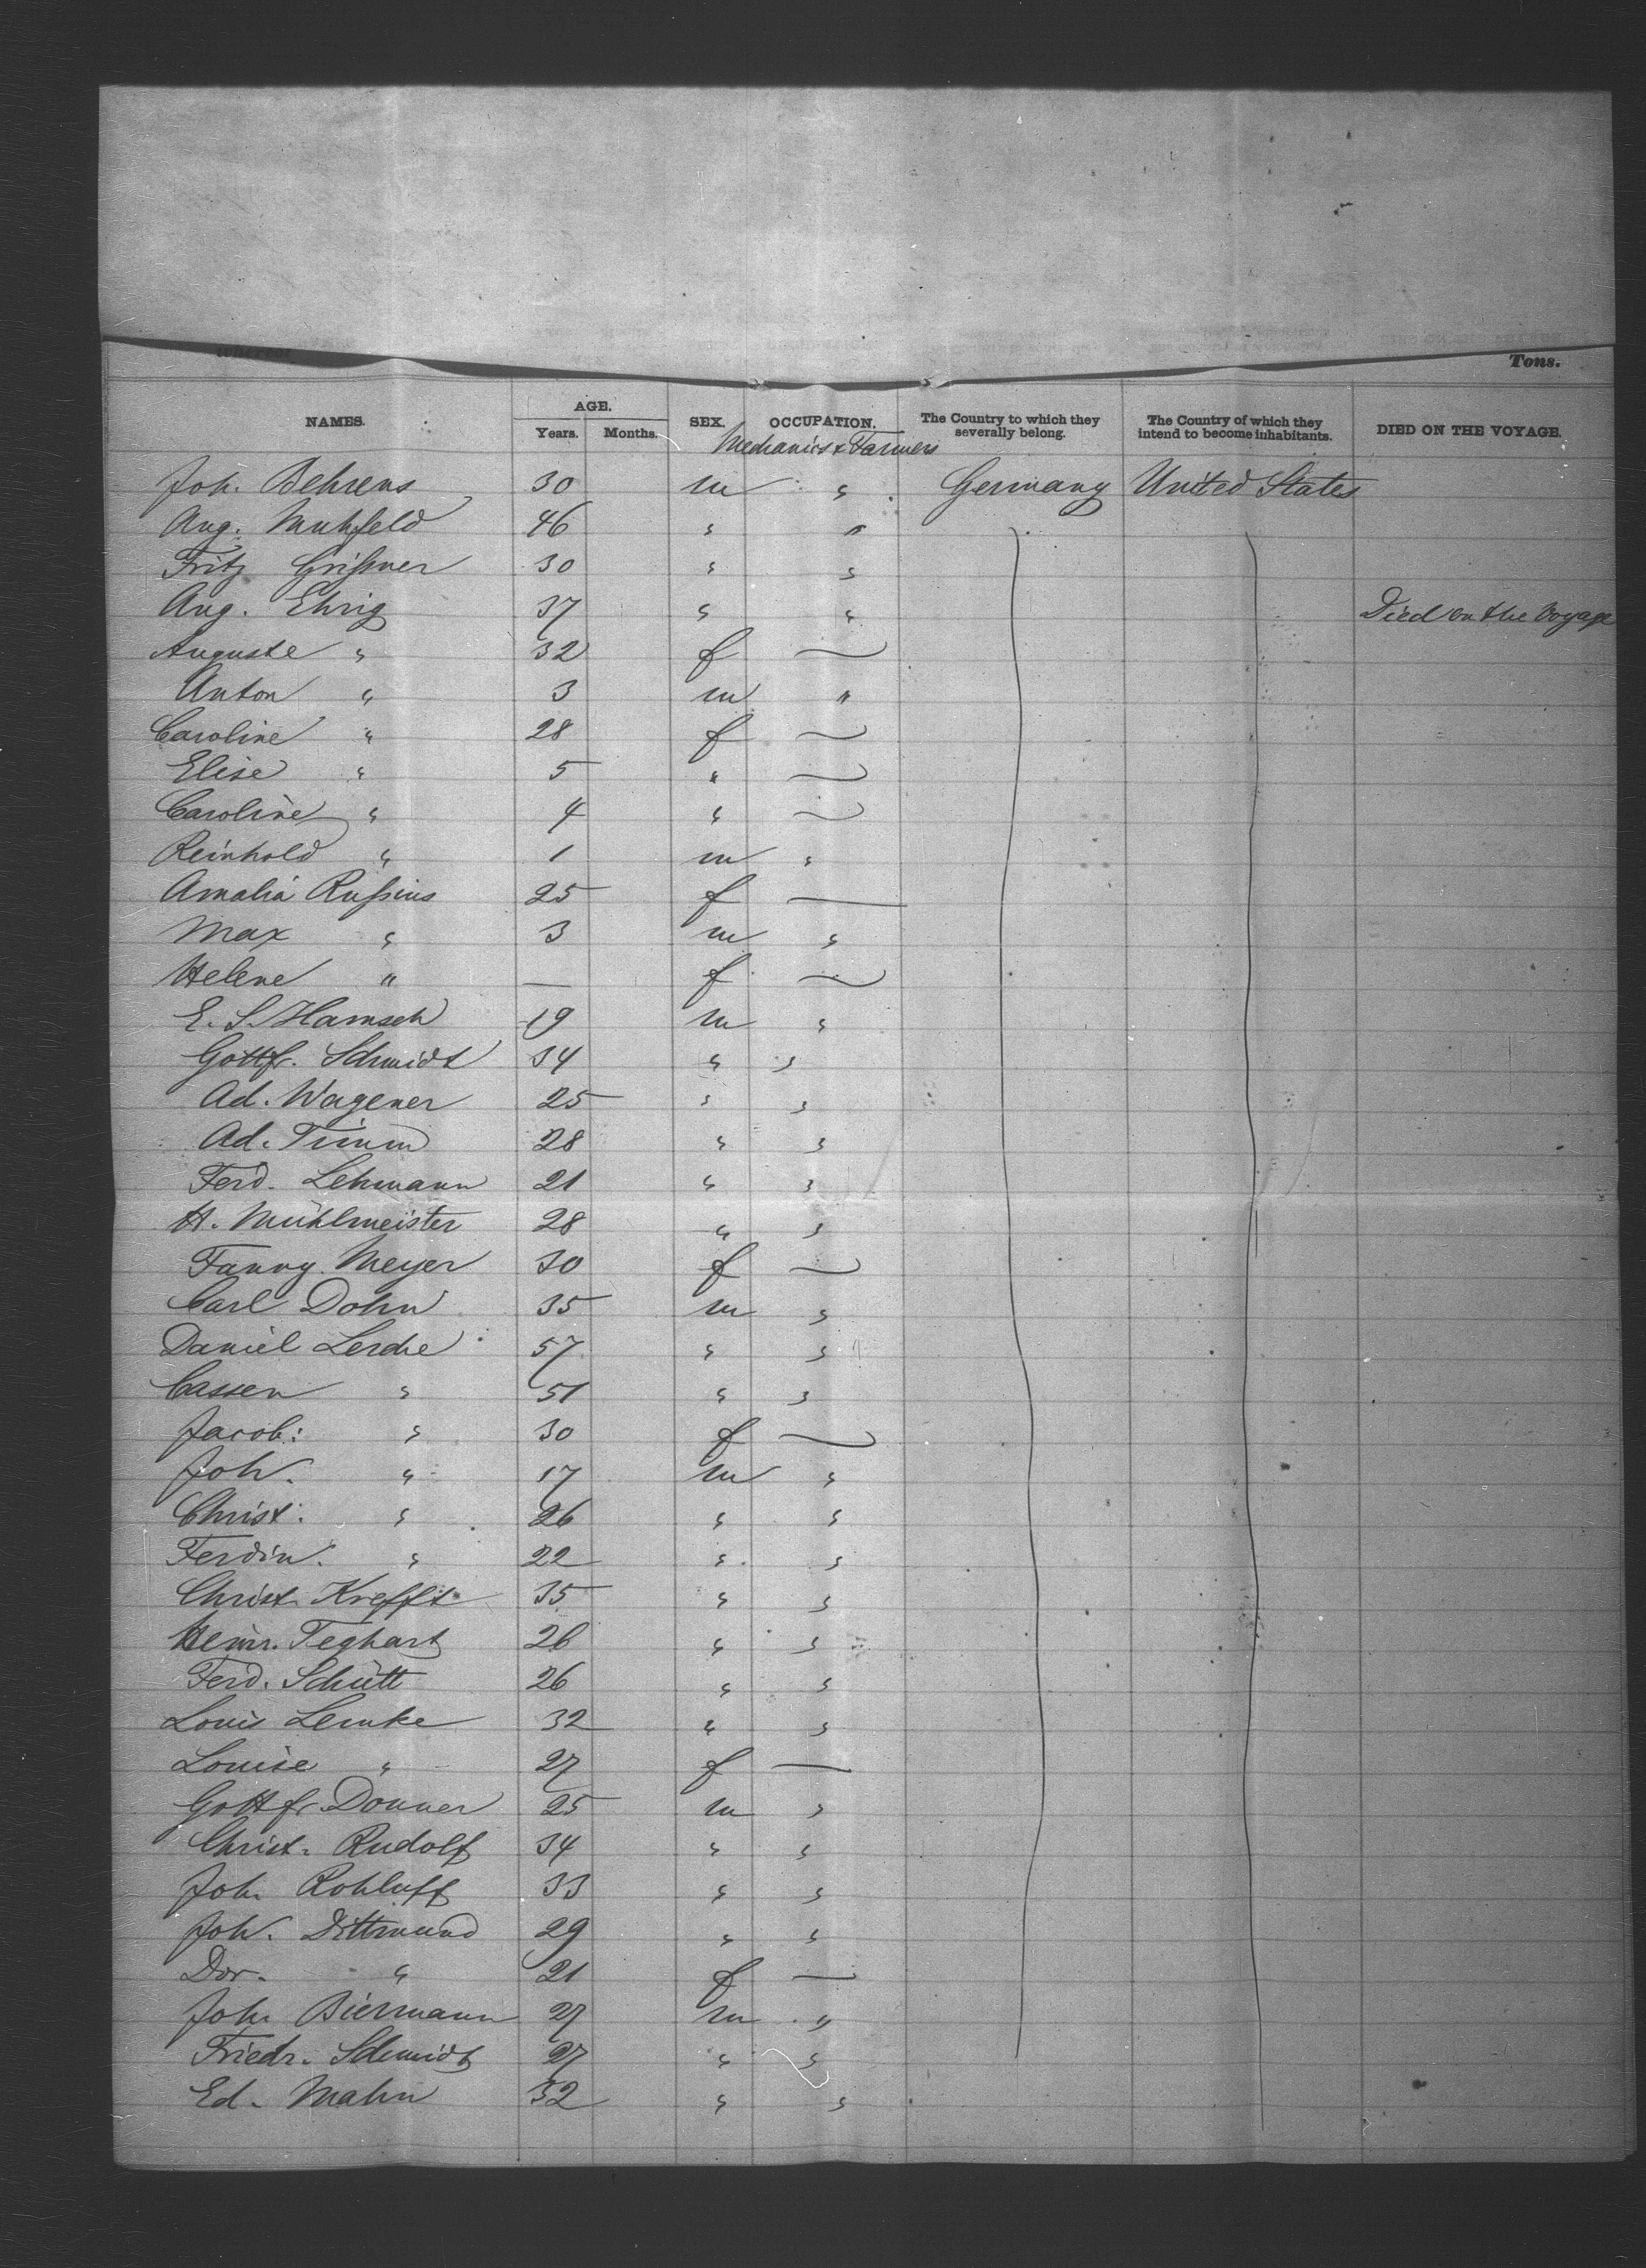 Tons.
NAMES. AGE. Years. Months. SEX. OCCUPATION. The Country to which they severally belong. The Country of which they intend to become inhabitants. DIED ON THE VOYAGE.
Mechanics & Farmers
Joh. Behrens 30 m " Germany United States
Aug. Muhfeld 46 " "
Fritz Grißner 30 " "
Aug. Ehrig 37 " " Died on the Voyage
Auguste " 32 f —
Anton " 3 m "
Caroline " 28 f —
Elise " 5 " —
Caroline " 4 " —
Reinhold " 1 m "
Amalia Rußius 25 f —
Max " 3 m "
Helene " — f —
E. S. Hamsch 19 m "
Gottfr. Schmidt 34 " "
Ad. Wagener 25 " "
Ad. Timm 28 " "
Ferd. Lehmann 21 " "
H. Mühlmeister 28 " "
Fanny Meyer 30 f —
Carl Dohn 35 m "
Daniel Lerche 57 " "
Cassen " 51 " "
Jacob: " 30 f —
Joh. " 17 m "
Christ. " 26 " "
Ferdin. " 22 " "
Christ. Krefft 35 " "
Heinr. Teghart 26 " "
Ferd. Schütt 26 " "
Louis Lemke 32 " "
Louise " 27 f —
Gottfr. Donner 25 m "
Christ. Rudolf 34 " "
Joh. Rohluff 33 " "
Joh. Dittmund 29 " "
Dor. " 21 f —
Joh. Biermann 27 m "
Friedr. Schmidt 27 " "
Ed. Mahn 32 " "